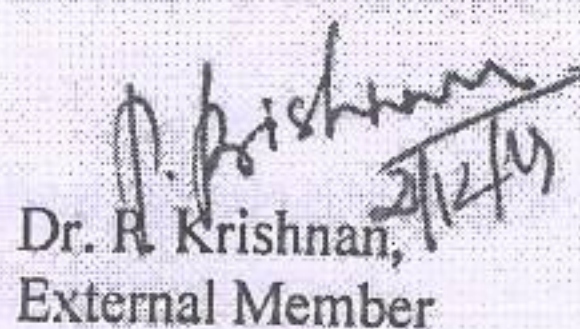 R. Krishnan
Dr. R. Krishnan,
External Member